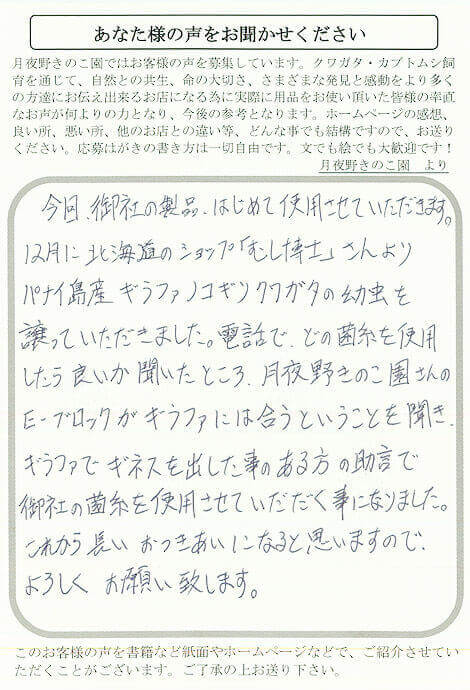 あなた様の声をお聞かせください
月夜野きのこ園ではお客様の声を募集しています。クワガタ・カブトムシ飼
育を通じて、自然との共生、命の大切さ、さまざまな発見と感動をより多く
の方達にお伝え出来るお店になる為に実際に用品をお使い頂いた皆様の率直
なお声が何よりの力となり、今後の参考となります。ホームページの感想、
良い所、悪い所、他のお店との違い等、どんな事でも結構ですので、お送り
ください。応募はがきの書き方は一切自由です。文でも絵でも大歓迎です!
月夜野きのこ園 より
今回、御社の製品、はじめて使用させていただきます。
12月に北海道のショップ「むし博士」さんより
パナイ島産ギラファノコギリクワガタの幼虫を
譲っていただきました。電話で、どの菌糸を使用
したら良いか聞いたところ、月夜野きのこ園さんの
E-ブロックがギラファには合うということを聞き、
ギラファでギネスを出した事のある方の助言で
御社の菌糸を使用させていただく事になりました。
これから長いおつきあいになると思いますので、
よろしくお願い致します。
このお客様の声を書籍など紙面やホームページなどで、ご紹介させてい
ただくことがございます。ご了承の上お送り下さい。